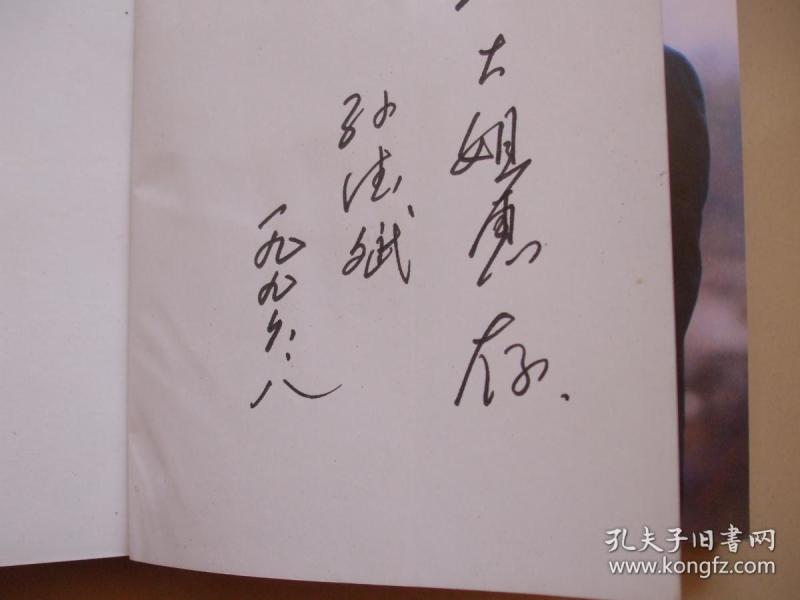 大姐惠存.
孙德斌
一九九六.八
孔夫子旧書网
www.kongfz.com